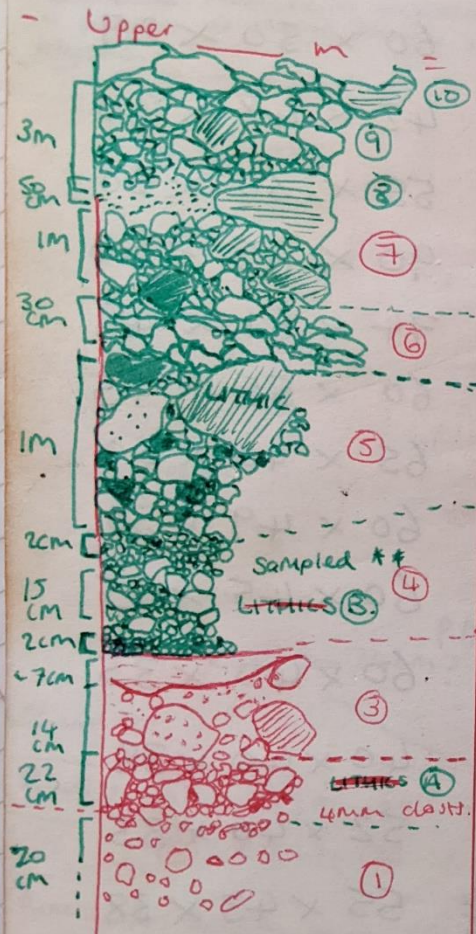 - Upper ____ m =
10
3m
9
50 cm
8
1m
7
30 cm
6
LITHIC
1m
5
2cm
Sampled **
4
15 cm
LITHICS B.
2cm
~7cm
3
14 cm
22 cm
LITHICS A
4mm clasts.
20 cm
1